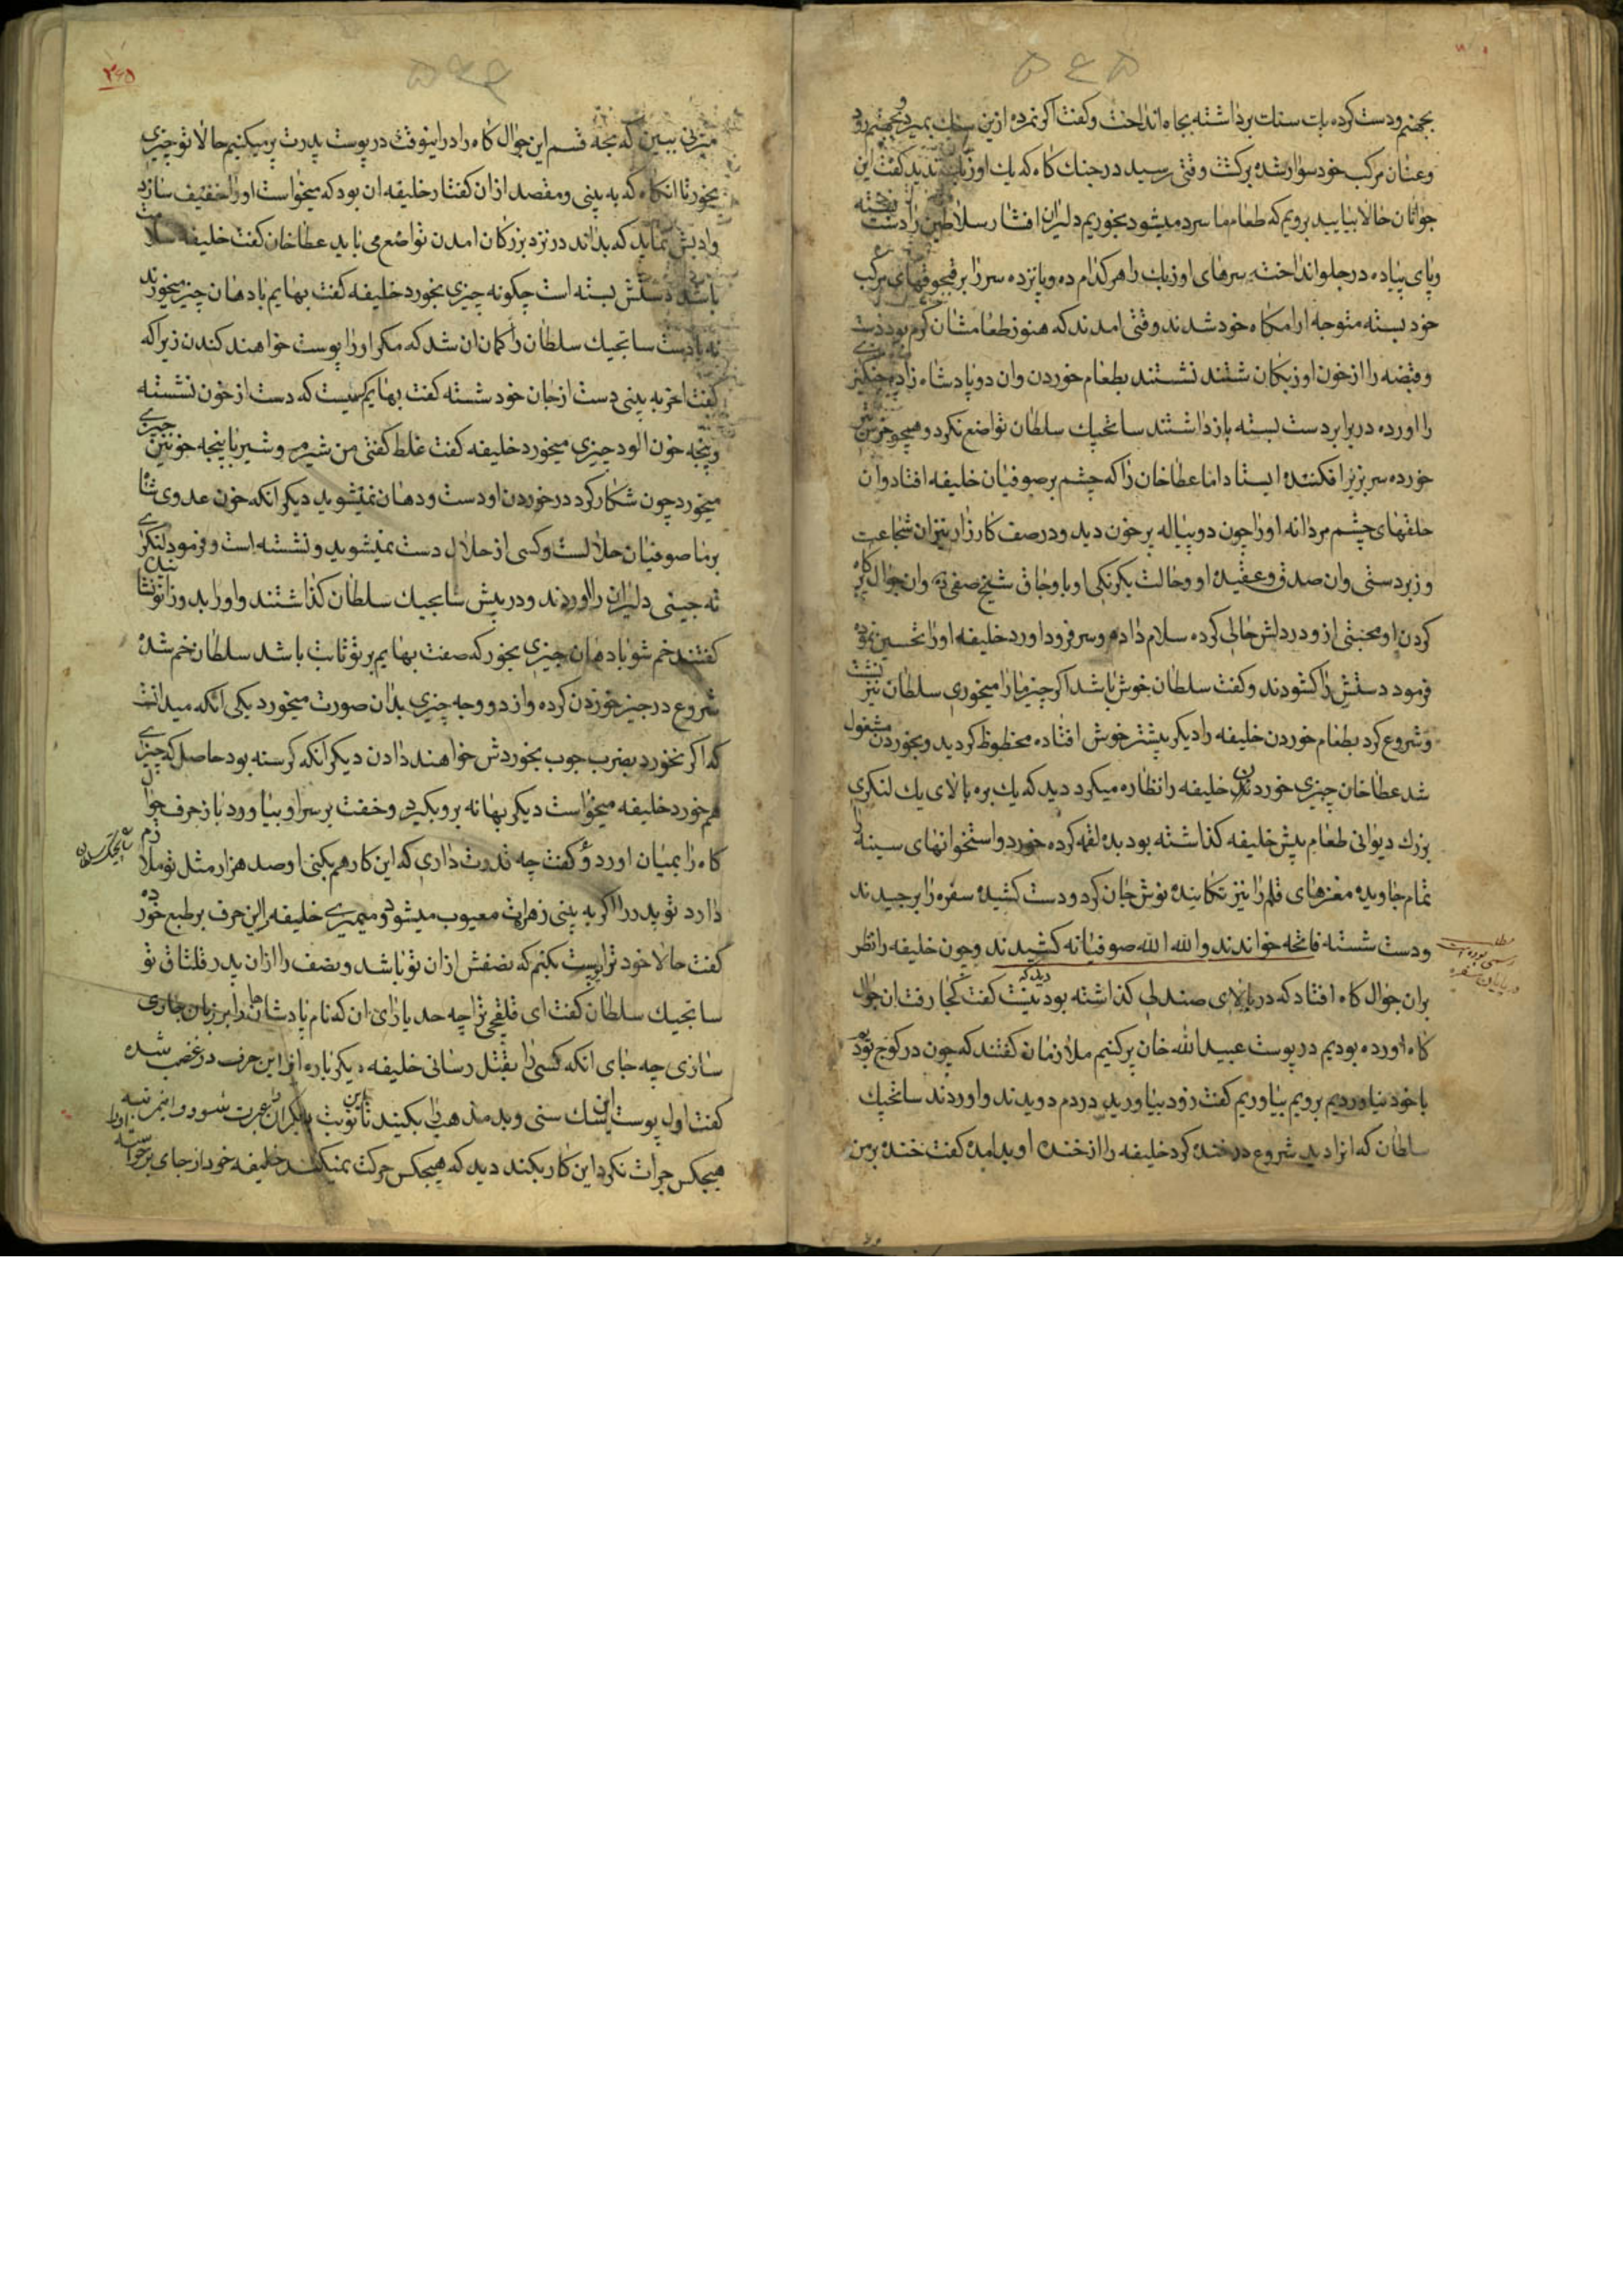 ۵۶۵
بجهنم و دست کرده بابت سنات برداشته بجاه انداخت و کفت اکر نمرده ازین بمیرد و بجهنم رود
و عنان مرکب خود سوار شده برکشت وقتی رسید در جنك کاه که یك اوزبك ندید کفت این
جوانان حالا بیایید برویم که طعام ما سرد میشود بخوریم دلیران افشار سلاطین را دست بسته
و پای پیاده در جلو انداخته سرهای اوزبك را هر کدام ده و پانزده سر را بر قبجوقهای مرکب
خود بسته متوجه ارامکاه خود شدند وقتی امدند که هنوز طعامشان کرم بود دست
و قبضه را از خون اوزبکان شستند نشستند بطعام خوردن وان دو پادشاه زاده چنکیزی
را اورده در برابر دست بسته بازداشتند سانجیك سلطان تواضع نکرد و همچو خرس تیر
خورده سر بزیر افکنده ایستاد اما عطاخان را که چشم بر صوفیان خلیفه افتاد وان
حلقهای چشم مردانه او را چون دو پیاله پر خون دید و در صف کارزار نیز ان شجاعت
و زبردستی وان صدق و عقیده او و حالت یکرنکی او با وجاق شیخ صفی و ان جوال پر کاه
کردن او محبتی ازو در دلش جای کرده سلام داده و سر فرود اورد خلیفه او را تحسین نموده
فرمود دستش را کشودند و کفت سلطان خوش باشد اکر چیز ما را میخوری سلطان نیز نشست
و شروع کرد بطعام خوردن خلیفه را دیکر بیشتر خوش افتاده محظوظ کردید و بخوردن مشغول
شد عطاخان چیزی خوردن خلیفه را نظاره میکرد دید که یك بره بالای یك لنکری
بزرك دیوانی طعام پیش خلیفه کذاشته بود بده لقمه کرده خورد و استخوانهای سینه را
تمام جاویده مغزهای قلم را نیز تکانیده نوش جان کرد و دست کشیده سفره را برچیدند
و دست شسته فاتحه خواندند و الله الله صوفیانه کشیدند و چون خلیفه را نظر
بران جوال کاه افتاد که در بالای صندلی کذاشته بود دید که نیست کفت کجا رفت ان جوال
کاه اورده بودیم در پوست عبید الله خان پر کنیم ملازمان کفتند که چون در کوچ بود
با خود نیاوردیم برویم بیاوریم کفت زود بیاورید در دم دویدند و اوردند سانجیك
سلطان که انرا دید شروع در خنده کرد خلیفه را از خنده او بد امده کفت خنده بر من
مطلب
رسمی بوده است
در پایان سفره
۵۶۶
۲۶۵
میزنی ببین که بچه قسم این جوال کاه را در اینوقت در پوست پدرت پر میکنیم حالا تو چیزی
بخور تا انکاه که به بینی و مقصد ازان کفتار خلیفه ان بود که میخواست او را خفیف سازد
وادبش نماید که بداند در نزد بزرکان امدن تواضع می باید عطاخان کفت خلیفه سلامت
باشد دستش بسته است چکونه چیزی بخورد خلیفه کفت بهایم با دهان چیز میخورند
نه با دست سانجیك سلطان را کمان ان شد که مکر او را پوست خواهند کندن زیرا که
کفت اخر به بینی دست از جان خود شسته کفت بهایم کسیست که دست از خون نشسته
و پنجه خون الود چیزی میخورد خلیفه کفت غلط کفتی من شیرم و شیر با پنجه خونین چیزی
میخورد چون شکار کرد در خوردن او دست و دهان نمیشوید دیکر انکه خون عدوی شاه
بر ما صوفیان حلالست و کسی از حلال دست نمیشوید و نشسته است و فرمود لنکری
ته چینی دلیران را اوردند و در پیش سانجیك سلطان کذاشتند و او را بدو زانو نشاندند
کفتند خم شو با دهان چیزی بخور که صفت بهایم بر تو ثابت باشد سلطان خم شده
شروع در چیز خوردن کرده و از دو وجه چیزی بدان صورت میخورد یکی انکه میدانست
که اکر نخورد بضرب چوب بخوردش خواهند دادن دیکر انکه کرسنه بود حاصل که چیزی
هم خورد خلیفه میخواست دیکر بهانه برو بکیرد و خفت بر سر او بیاورد باز حرف جوال
کاه را بمیان اورد و کفت چه قدرت داری که این کار هم بکنی او صد هزار مثل تو ملازم
دارد تو پدر را اکر به بینی زهرات معیوب میشود و میمیری خلیفه را این حرف بر طبع خورده
کفت حالا خود ترا پوست بکنم که نصفش ازان تو باشد و نصف را ازان پدر قلتاق تو
سانجیك سلطان کفت ای قلقچی ترا چه حد یارای ان که نام پادشاهان را بر زبان جاری
سازی چه جای انکه کسی را بقتل رسانی خلیفه دیکر باره از این حرف در غضب شده
کفت اول پوست این سك سنی و بد مذهب را بکنید تا دیکران را عبرت شود
هیچکس جرات نکرد این کار بکند دید که هیچکس حرکت نمیکند خلیفه خود از جای برخواسته
سانجیك سلطان